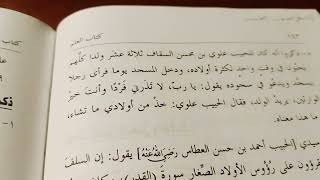 كتاب العلم
- وذكر أنه كان للحبيب علوي بن محسن السقاف ثلاثة عشر ولدا كلهم
في وقت واحد لكثرة أولاده، ودخل المسجد يوما فرأى رجلا
ويدعو في سجوده يقول: يا رب؛ لا تذرني فردًا وأنت خير
الوارثين، يريد الولد، فقال الحبيب علوي: خذ من أولادي ما تشاء،
ما هذا معناه.
سيدي [الحبيب أحمد بن حسن العطاس رَضِيَ اللهُ عَنْهُ] يقول: إن السلف
يقرؤون على رؤوس الأولاد الصِّغار سورة (القدر)
كتاب
ذكر
- ١